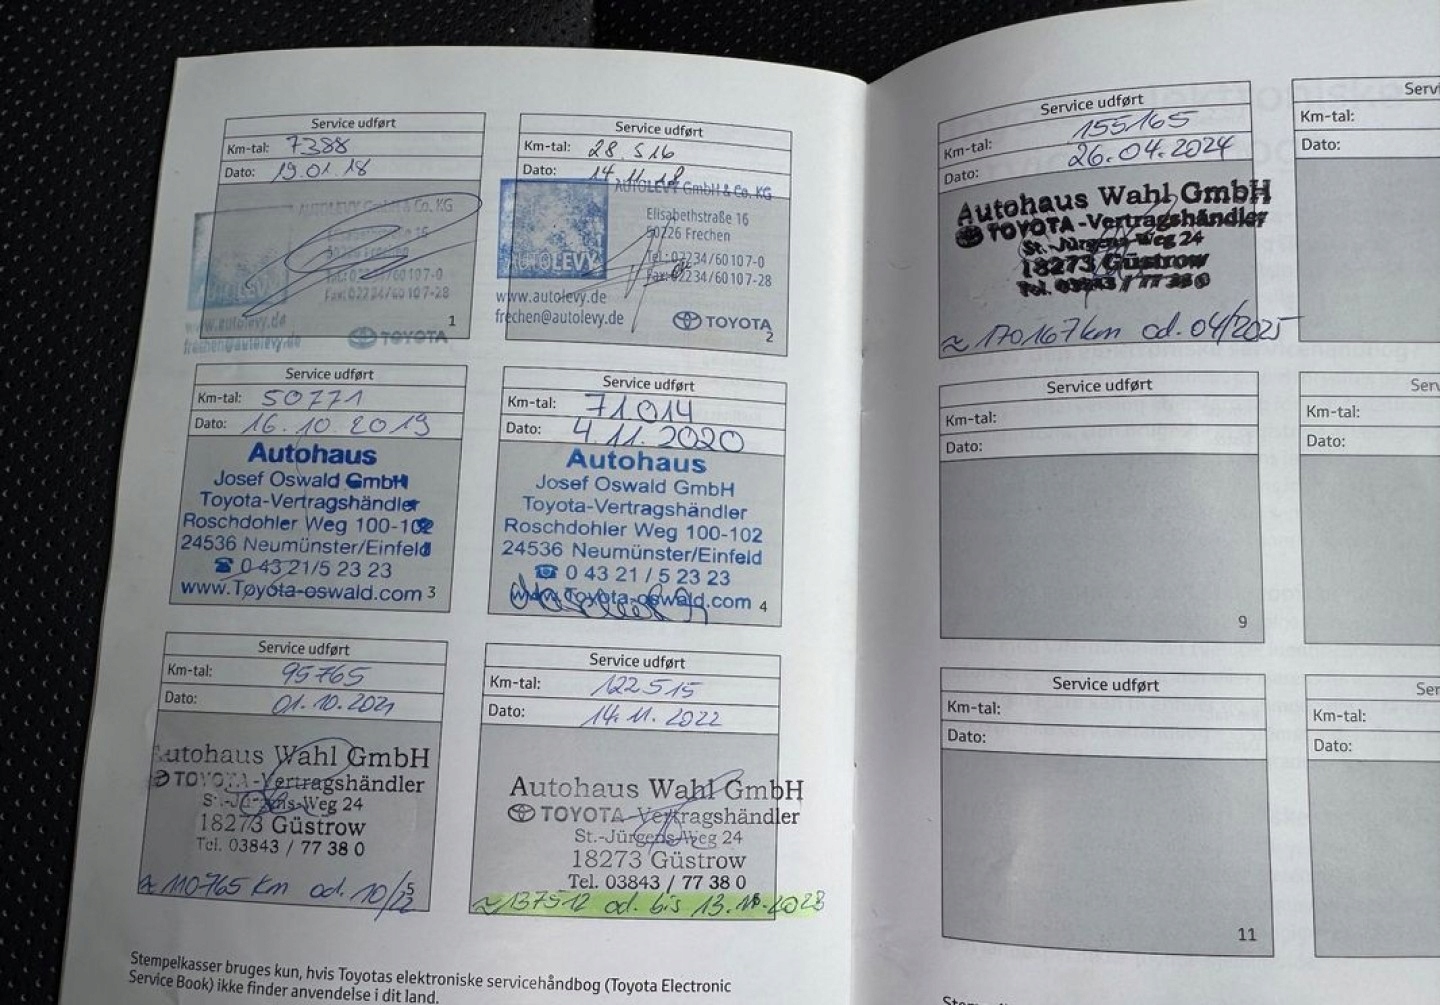 Service udført
Km-tal: 7388
Dato: 19.01.18
AUTOLEVY GmbH & Co. KG
Elisabethstraße 16
50226 Frechen
Tel.: 02234/60107-0
Fax: 02234/60107-28
AUTOLEVY
www.autolevy.de
frechen@autolevy.de
TOYOTA
1
Service udført
Km-tal: 28.516
Dato: 14.11.18
AUTOLEVY GmbH & Co. KG
Elisabethstraße 16
50226 Frechen
Tel.: 02234/60107-0
Fax: 02234/60107-28
AUTOLEVY
www.autolevy.de
frechen@autolevy.de
TOYOTA
2
Service udført
Km-tal: 50771
Dato: 16.10.2019
Autohaus
Josef Oswald GmbH
Toyota-Vertragshändler
Roschdohler Weg 100-102
24536 Neumünster/Einfeld
☎ 0 43 21/5 23 23
www.Toyota-oswald.com 3
Service udført
Km-tal: 71014
Dato: 4.11.2020
Autohaus
Josef Oswald GmbH
Toyota-Vertragshändler
Roschdohler Weg 100-102
24536 Neumünster/Einfeld
☎ 0 43 21 / 5 23 23
www.Toyota-oswald.com 4
Service udført
Km-tal: 95765
Dato: 01.10.2021
Autohaus Wahl GmbH
TOYOTA-Vertragshändler
St.-Jürgens-Weg 24
18273 Güstrow
Tel. 03843 / 77 38 0
≈ 110765 km od. 10/22
Service udført
Km-tal: 122515
Dato: 14.11.2022
Autohaus Wahl GmbH
TOYOTA-Vertragshändler
St.-Jürgens-Weg 24
18273 Güstrow
Tel. 03843 / 77 38 0
≈ 137512 od. bis 13.11.2023
Stempelkasser bruges kun, hvis Toyotas elektroniske servicehåndbog (Toyota Electronic
Service Book) ikke finder anvendelse i dit land.
Service udført
Km-tal: 155165
Dato: 26.04.2024
Autohaus Wahl GmbH
TOYOTA-Vertragshändler
St.-Jürgens-Weg 24
18273 Güstrow
Tel. 03843 / 77 38 0
≈ 170167km od. 04/2025
Servi
Km-tal:
Dato:
Service udført
Km-tal:
Dato:
9
Serv
Km-tal:
Dato:
Service udført
Km-tal:
Dato:
11
Ser
Km-tal:
Dato: